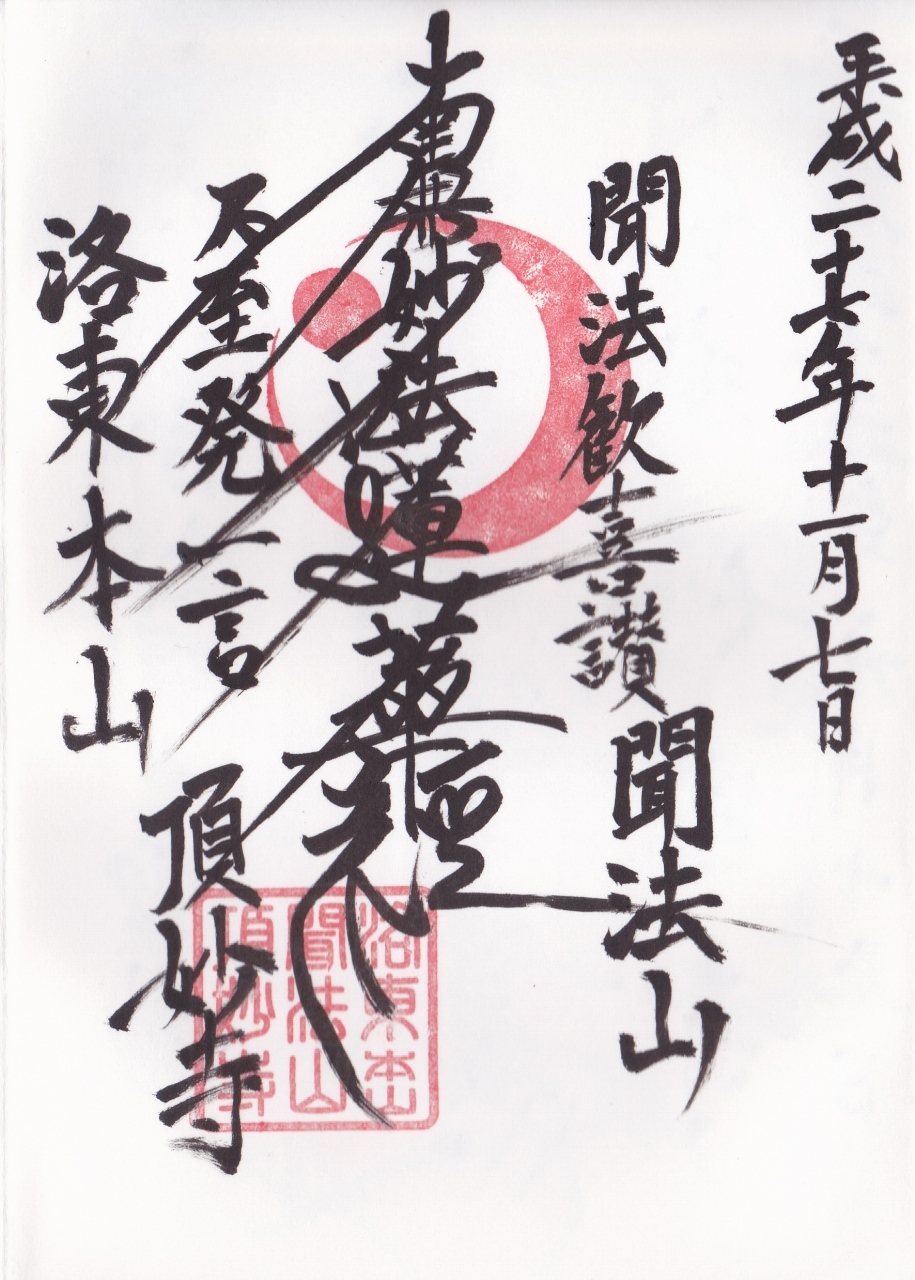 平成二十七年十一月七日
聞法歓喜讃
聞法山
南無妙法蓮華経
乃至発一言
洛東本山
頂妙寺
洛東本山
聞法山
頂妙寺